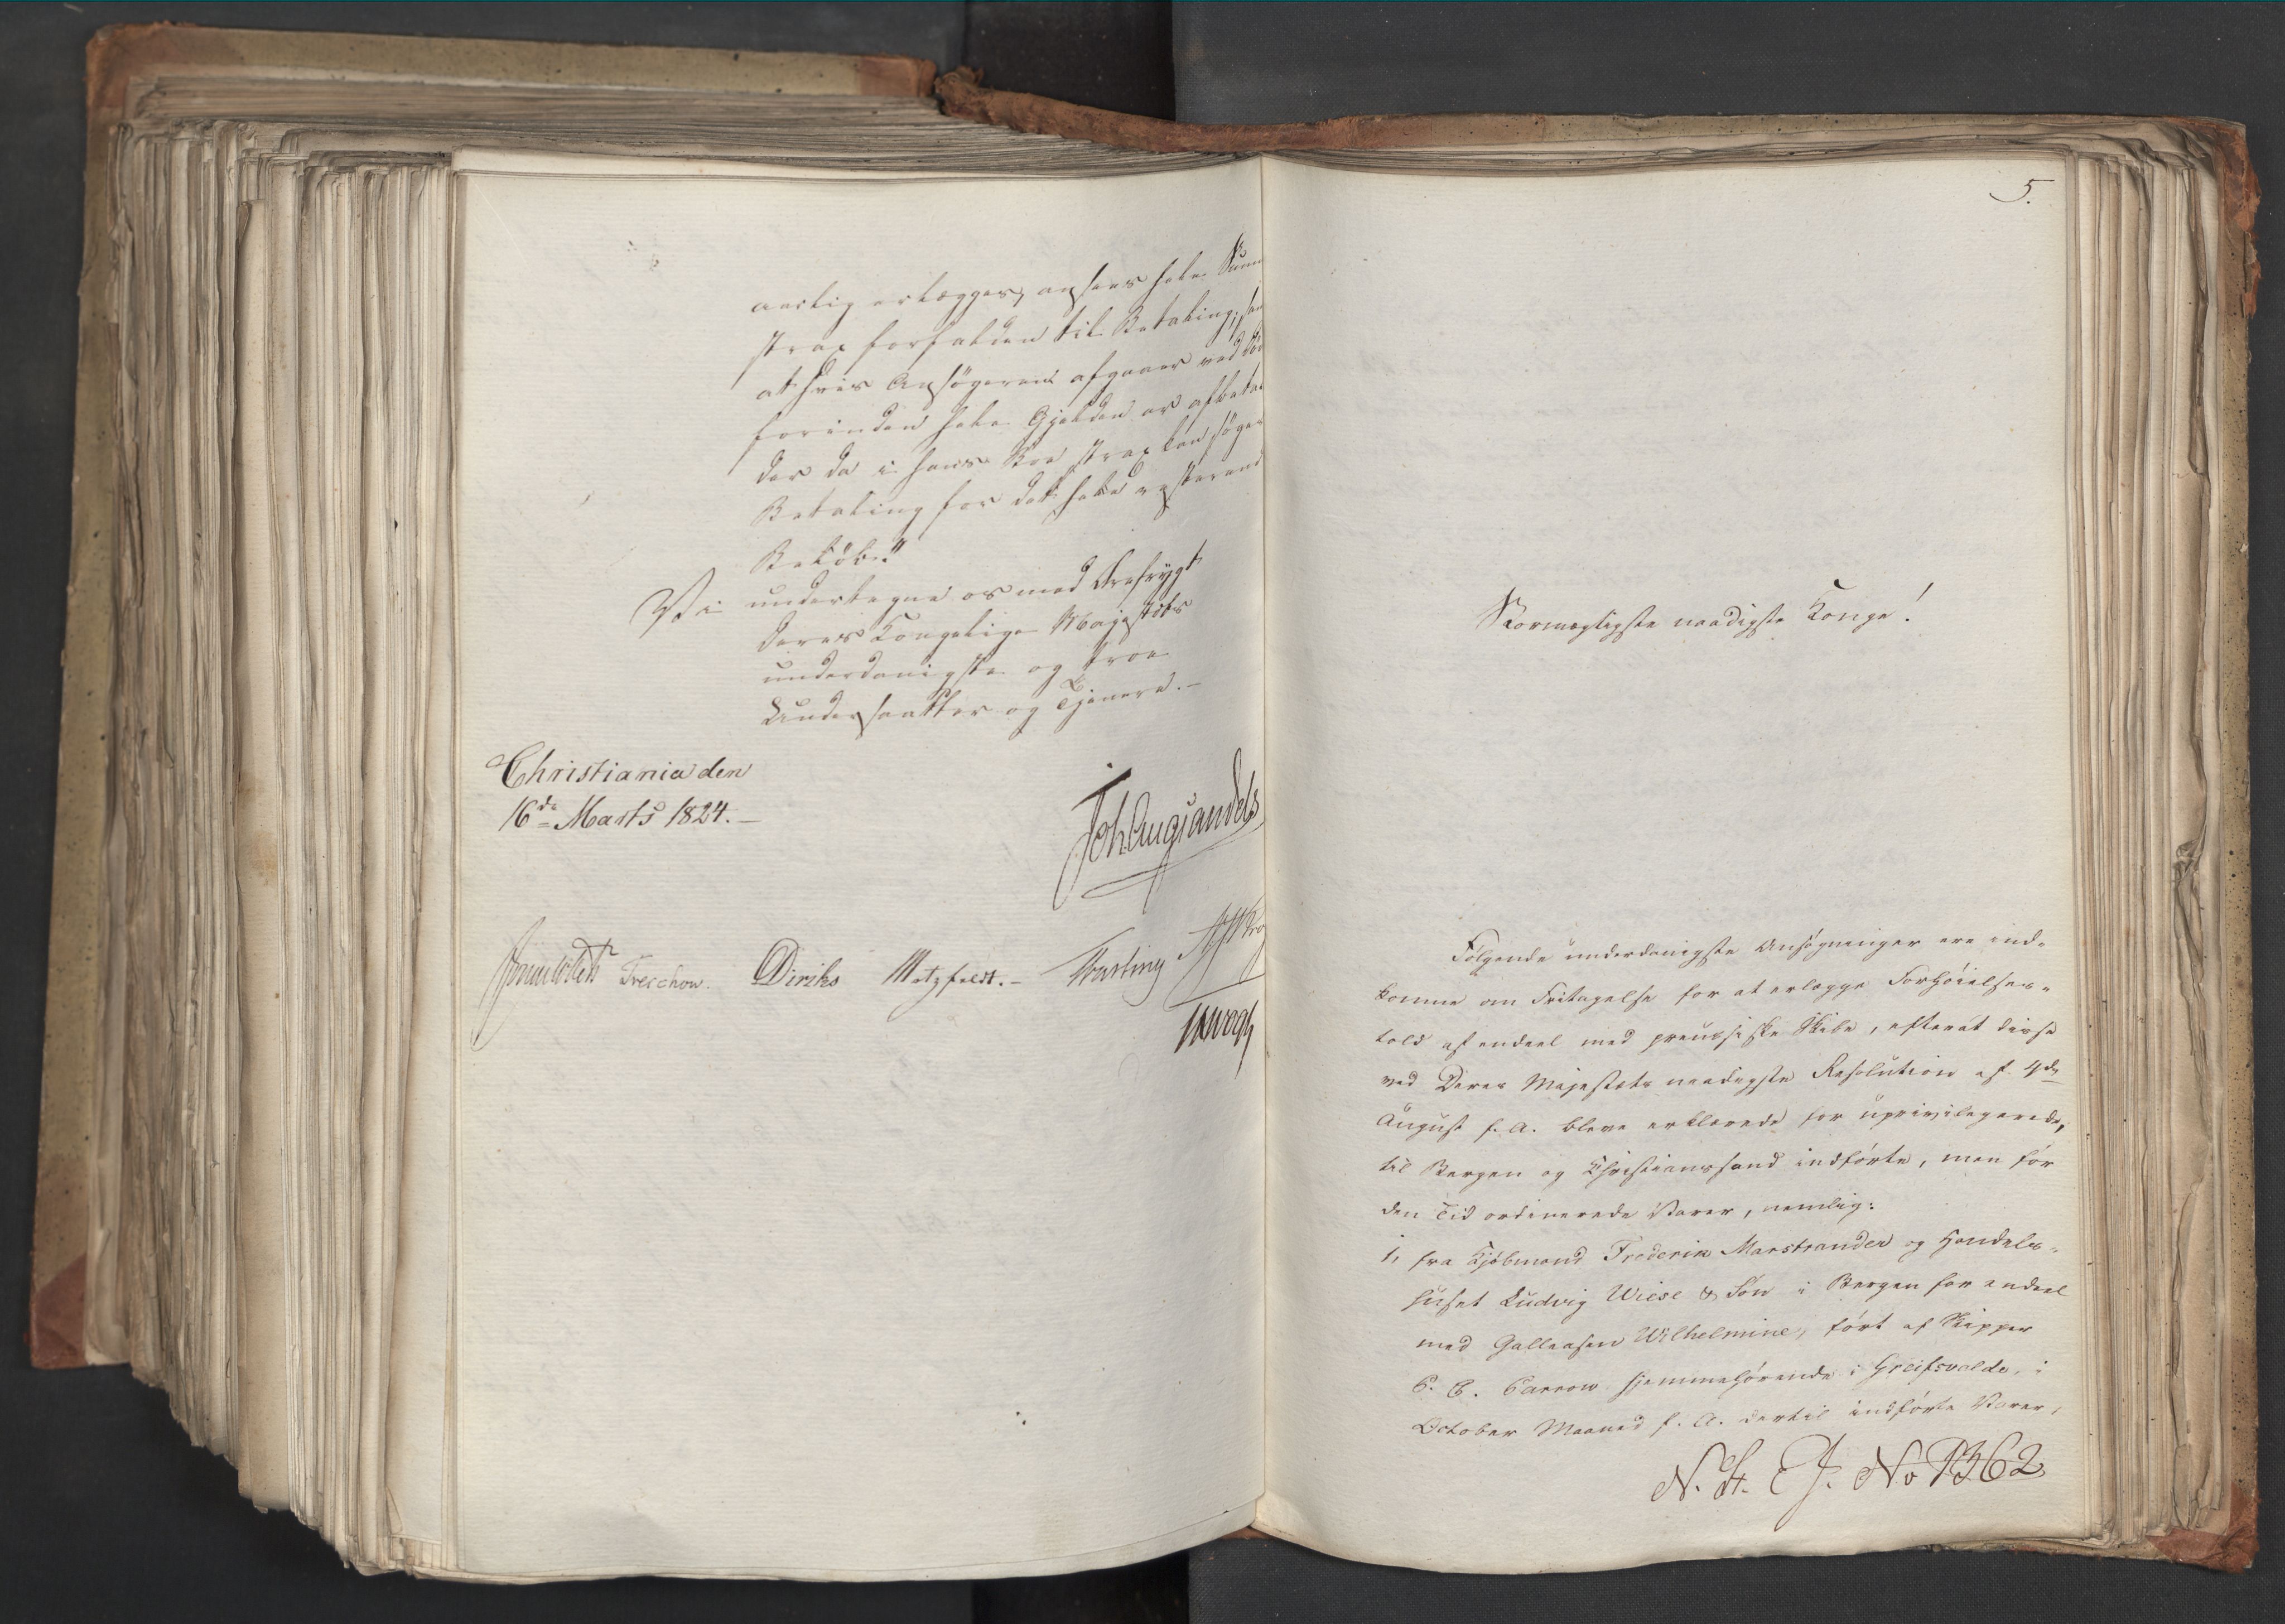 aarlig erlægges, ansees hele Summ
strax forfalden til Betaling, sam
at hvis Ansøgeren afgaaer ved Dø
forinden hele Gjelden er afbetal
der da i hans Boe strax kan søges
Betaling for det hele resterend
Beløb."
Vi undertegne os med Ærefrygt
Deres Kongelige Majestæts
underdanigste og troe
Undersaatter og Tjenere.-
Christiania den
16de Marts 1824.-
Joh Aug Sandels
Sommerhielm Treschow. Diriks Motzfeldt.- Fasting
5.
Stormægtigste naadigste Konge!
Følgende underdanigste Ansøgninger ere ind-
komne om Fritagelse for at erlægge Forhøielses-
told af endeel med preussiske Skibe, efterat disse
ved Deres Majestæts naadigste Resolution af 4de
August f. A. bleve erklærede for upriviligerede,
til Bergen og Christianssand indførte, men før
den Tid ordinerede Varer, nemlig:
1, fra Kjøbmand Frederik Marstrander og Handels-
huset Ludvig Wiese & Søn i Bergen for endeel
med Galleasen Wilhelmine, ført af Skipper
C. B. Carrow hjemmehørende i Greifsvalde, i
October Maaned f. A. dertil indførte Varer,
N. St. E J. No 1362